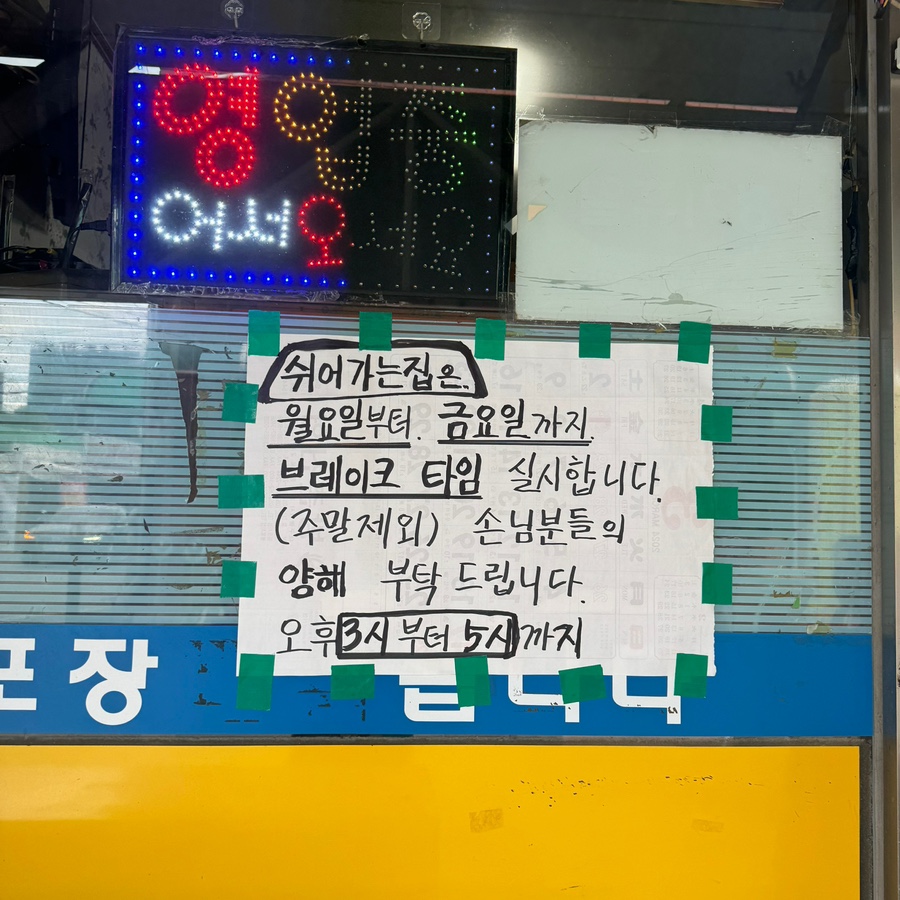 영업중
어서오세요
쉬어가는집은.
월요일부터. 금요일까지.
브레이크 타임 실시합니다.
(주말제외) 손님분들의
양해 부탁드립니다.
오후 3시부터 5시까지
포장